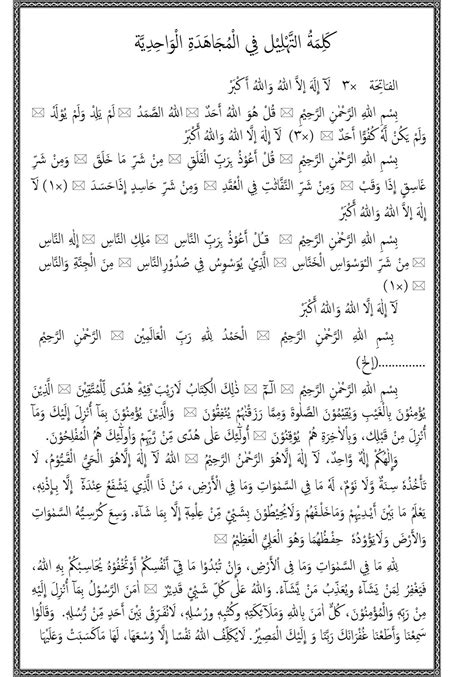 كَلِمَةُ التَّهْلِيْلِ فِي الْمُجَاهَدَةِ الْوَاحِدِيَّة
الفَاتِحَة ×٣ لَآ إِلَهَ إِلاَّ اللهُ وَاللهُ أَكْبَرُ
بِسْمِ اللهِ الرَّحْمٰنِ الرَّحِيْمِ قُلْ هُوَ اللهُ أَحَدٌ اللهُ الصَّمَدُ لَمْ يَلِدْ وَلَمْ يُوْلَدْ
وَلَمْ يَكُنْ لَّهُ كُفُوًا أَحَدٌ (×٣) لَآ إِلَهَ إِلَّا اللهُ وَاللهُ أَكْبَرُ
بِسْمِ اللهِ الرَّحْمٰنِ الرَّحِيْمِ قُلْ أَعُوْذُ بِرَبِّ الْفَلَقِ مِنْ شَرِّ مَا خَلَقَ وَمِنْ شَرِّ
غَاسِقٍ إِذَا وَقَبْ وَمِنْ شَرِّ النَّفَّاثٰتِ فِي الْعُقَدِ وَمِنْ شَرِّ حَاسِدٍ إِذَاحَسَدَ (×١) لَآ
إِلَهَ إِلاَّ اللهُ وَاللهُ أَكْبَرُ
بِسْمِ اللهِ الرَّحْمٰنِ الرَّحِيْمِ قُلْ أَعُوْذُ بِرَبِّ النَّاسِ مَلِكِ النَّاسِ إِلٰهِ النَّاسِ
مِنْ شَرِّ الوَسْوَاسِ الْخَنَّاسِ الَّذِيْ يُوَسْوِسُ فِي صُدُوْرِالنَّاسِ مِنَ الْجِنَّةِ وَالنَّاسِ
(×١)
لَآ إِلَهَ إِلَّا اللهُ وَاللهُ أَكْبَرُ
بِسْمِ اللهِ الرَّحْمٰنِ الرَّحِيْمِ الْحَمْدُ لِلهِ رَبِّ الْعَالَمِيْنَ الرَّحْمٰنِ الرَّحِيْمِ
..............(إلخ)
بِسْمِ اللهِ الرَّحْمٰنِ الرَّحِيْمِ الٓمّٓ ذٰلِكَ الْكِتَابُ لَارَيْبَ فِيْهِ هُدًى لِّلْمُتَّقِيْنَ الَّذِيْنَ
يُؤْمِنُوْنَ بِالْغَيْبِ وَيُقِيْمُوْنَ الصَّلٰوةَ وَمِمَّا رَزَقْنٰهُمْ يُنْفِقُوْنَ وَالَّذِيْنَ يُؤْمِنُوْنَ بِمَآ أُنْزِلَ إِلَيْكَ وَمَآ
أُنْزِلَ مِنْ قَبْلِكَ، وَبِالْاٰخِرَةِ هُمْ يُوْقِنُوْنَ أُولٰٓئِكَ عَلَى هُدًى مِّنْ رَّبِّهِمْ وَأُولٰٓئِكَ هُمُ الْمُفْلِحُوْنَ.
وَإِلٰهُكُمْ إِلٰهٌ وَّاحِدٌ، لَآ إِلَهَ إِلَّاهُوَ الرَّحْمٰنُ الرَّحِيْمُ اللهُ لَآ إِلَهَ إِلَّاهُوَ الْحَيُّ الْقَيُّوْمُ، لَا
تَأْخُذُهُ سِنَةٌ وَّلَا نَوْمٌ، لَهُ مَا فِي السَّمٰوَاتِ وَمَا فِي الْأَرْضِ، مَنْ ذَا الَّذِي يَشْفَعُ عِنْدَهُ إِلَّا بِإِذْنِهِ،
يَعْلَمُ مَا بَيْنَ أَيْدِيْهِمْ وَمَاخَلْفَهُمْ وَلَايُحِيْطُوْنَ بِشَيْئٍ مِنْ عِلْمِهِ إِلَّا بِمَا شَآءَ. وَسِعَ كُرْسِيُّهُ السَّمٰوَاتِ
وَالْأَرْضَ وَلَايَؤُوْدُهُ حِفْظُهُمَا وَهُوَ الْعَلِيُّ الْعَظِيْمُ
لِلهِ مَا فِي السَّمٰوَاتِ وَمَا فِي الْأَرْضِ، وَإِنْ تُبْدُوْا مَا فِيْ أَنْفُسِكُمْ أَوْتُخْفُوْهُ يُحَاسِبْكُمْ بِهِ اللهُ،
فَيَغْفِرُ لِمَنْ يَشَآءُ وَيُعَذِّبُ مَنْ يَّشَآءُ. وَاللهُ عَلَى كُلِّ شَيْئٍ قَدِيْرٌ اٰمَنَ الرَّسُوْلُ بِمَآ أُنْزِلَ إِلَيْهِ
مِنْ رَبِّهِ وَالْمُؤْمِنُوْنَ، كُلٌّ اٰمَنَ بِاللهِ وَمَلَآئِكَتِهِ وَكُتُبِهِ وَرُسُلِهِ، لَانُفَرِّقُ بَيْنَ أَحَدٍ مِّنْ رُّسُلِهِ. وَقَالُوْا
سَمِعْنَا وَأَطَعْنَا غُفْرَانَكَ رَبَّنَا وَ إِلَيْكَ الْمَصِيْرُ. لَايُكَلِّفُ اللهُ نَفْسًا إِلَّا وُسْعَهَا، لَهَا مَاكَسَبَتْ وَعَلَيْهَا